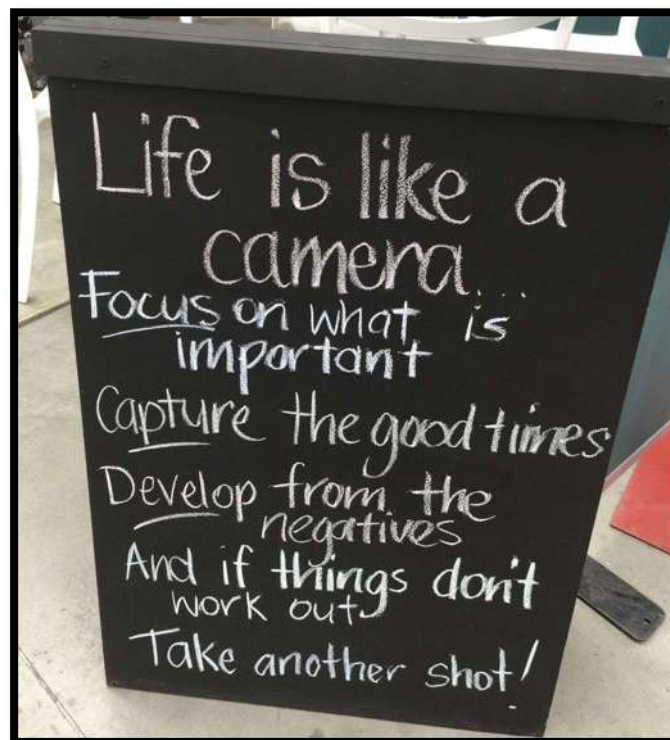 Life is like a
camera...
Focus on what is
important
Capture the good times
Develop from the
negatives
And if things don't
work out
Take another shot!